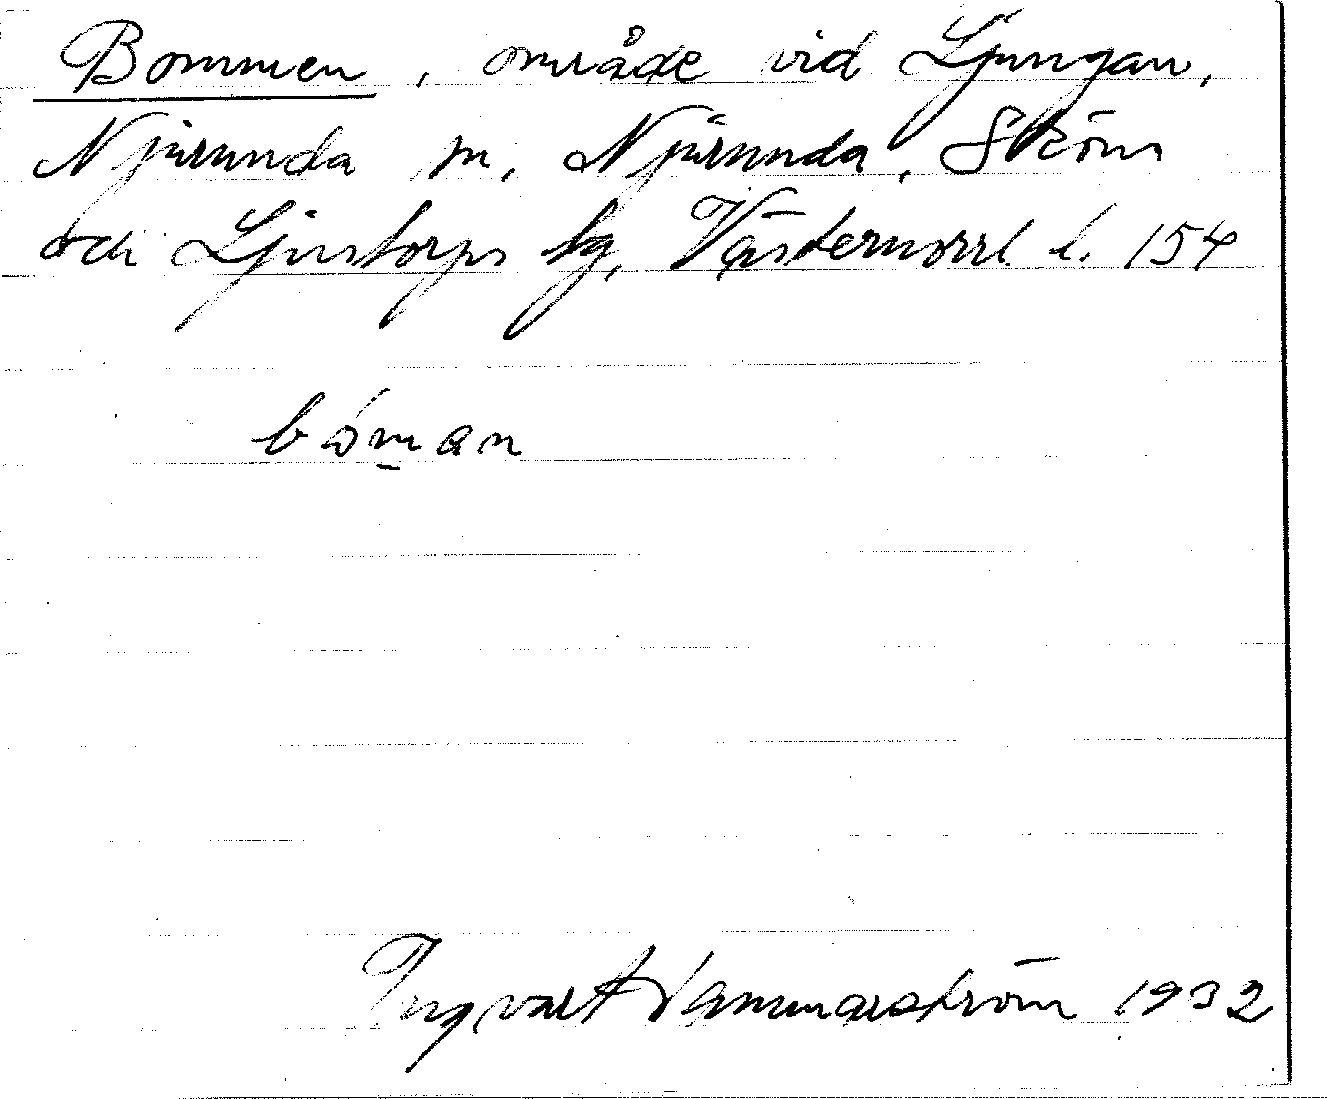 Bommen, område vid Ljungan,
Njurunda sn, Njurunda, Sköns
och Ljustorps tg, Västernorrl l. 154
bóman
Ingvart Hammarström 1932